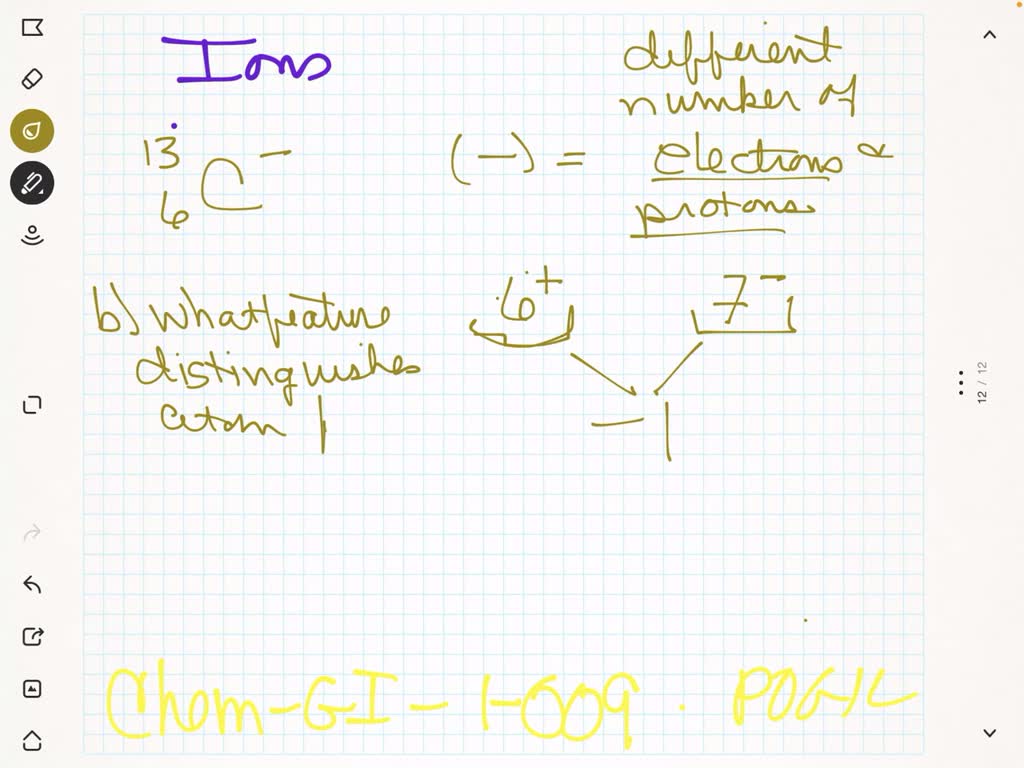 Ions
13
6 C −
(−) = different
number of
electrons &
protons
b) What feature
distinguishes
atom
6+ 7−
−1
12 / 12
Chem-GI-1-009 . POGIL